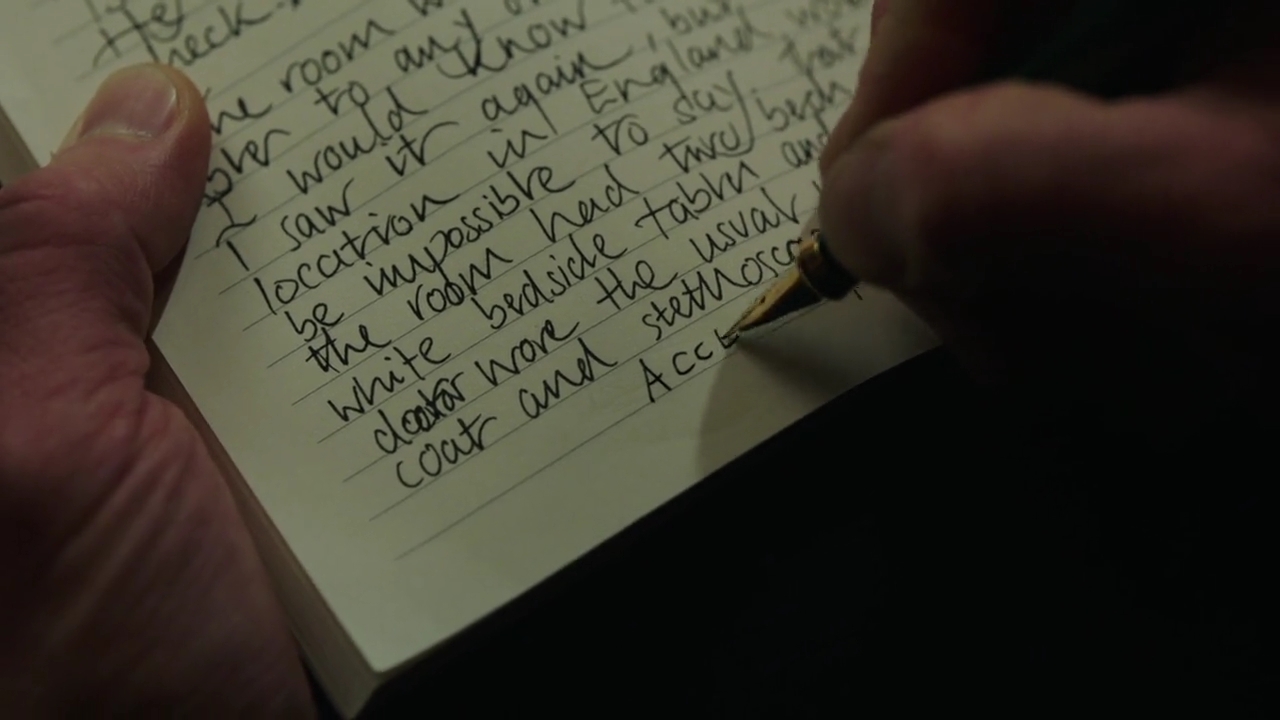 He
neck.
the room
to any
I would know
I saw it again, but
location in England
be impossible to say that
the room had two beds
white bedside tabln and
doctor wore the usual
coat and stethosco
Acc